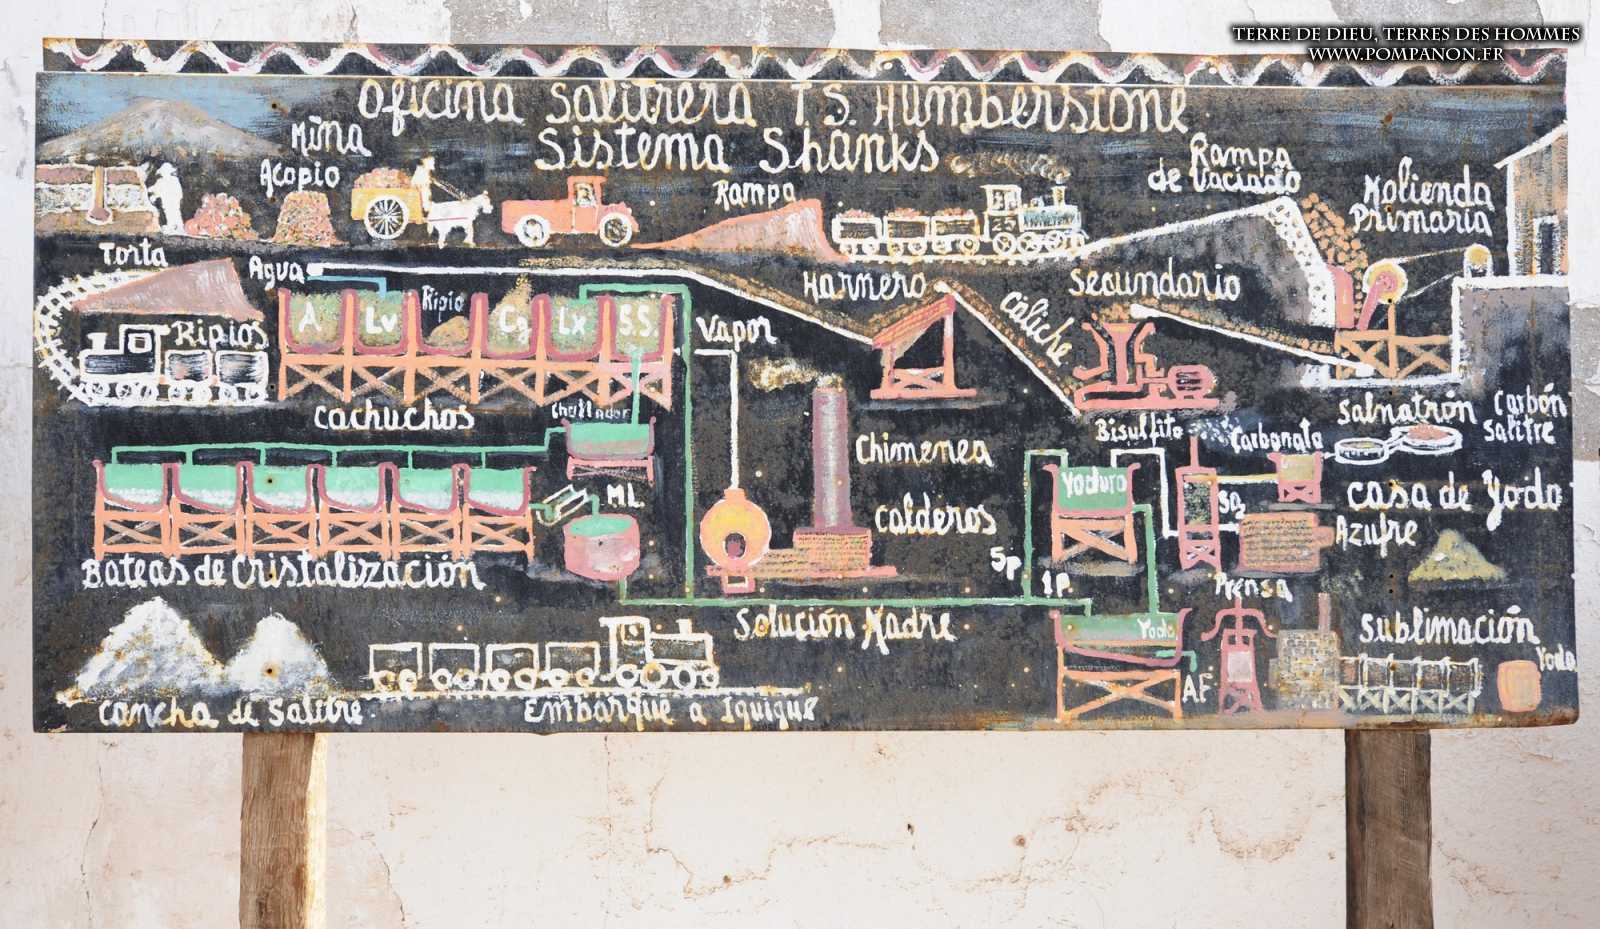 TERRE DE DIEU, TERRES DES HOMMES
WWW.POMPANON.FR
Oficina Salitrera T.S. Humberstone
Sistema Shanks
Mina
Acopio
Rampa
Rampa
de Vaciado
Molienda
Primaria
Torta
Agua
Ripios
A
Lv
Ripio
Lx
S.S.
Vapor
Harnero
Caliche
Secundario
Cachuchos
Chullador
Chimenea
Calderos
ML
Bateas de Cristalización
Bisulfito
Carbonato
Salnatrón
Carbón
Salitre
Yoduro
SO₂
Casa de Yodo
Azufre
5p
1p
Prensa
Solución Madre
Yodo
AF
Sublimación
Yodo
Cancha de Salitre
25
Embarque a Iquique